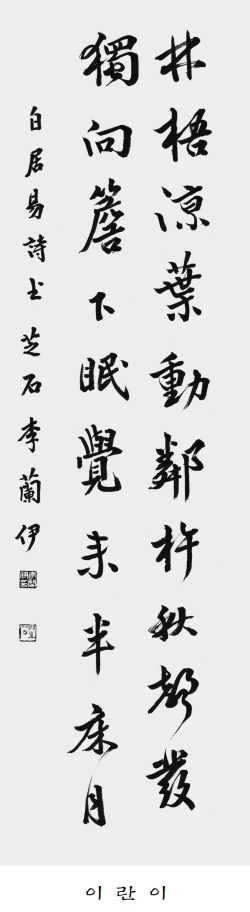 井梧涼葉動鄰杵秋聲發
獨向簷下眠覺來半床月
白居易詩書 芝石 李蘭伊
이란이